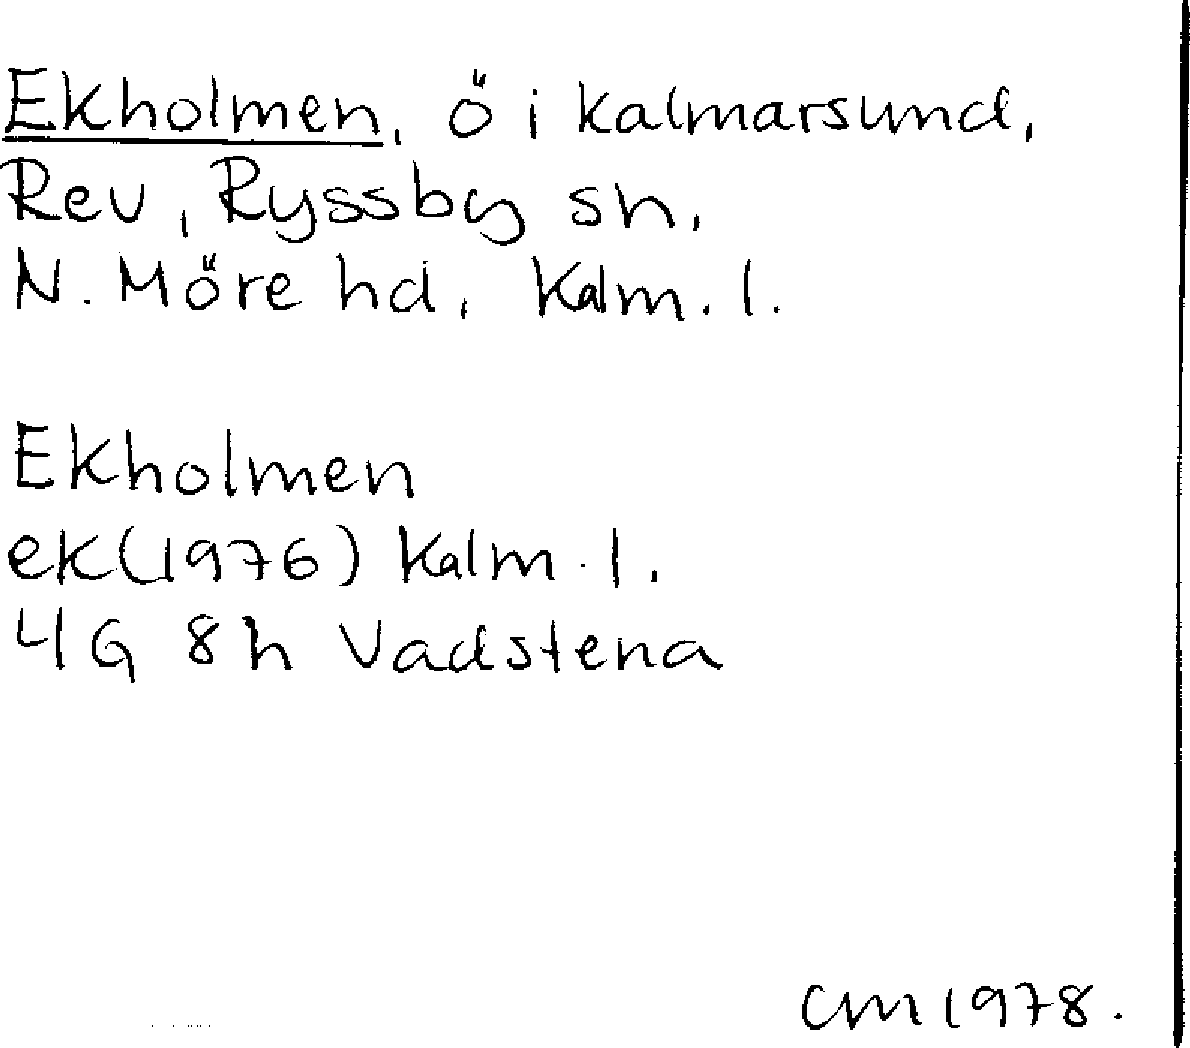 Ekholmen, ö i Kalmarsund,
Rev, Ryssby sn,
N. Möre hd, Kalm. l.
Ekholmen
ek (1976) Kalm. l.
4G 8h Vadstena
CM 1978.